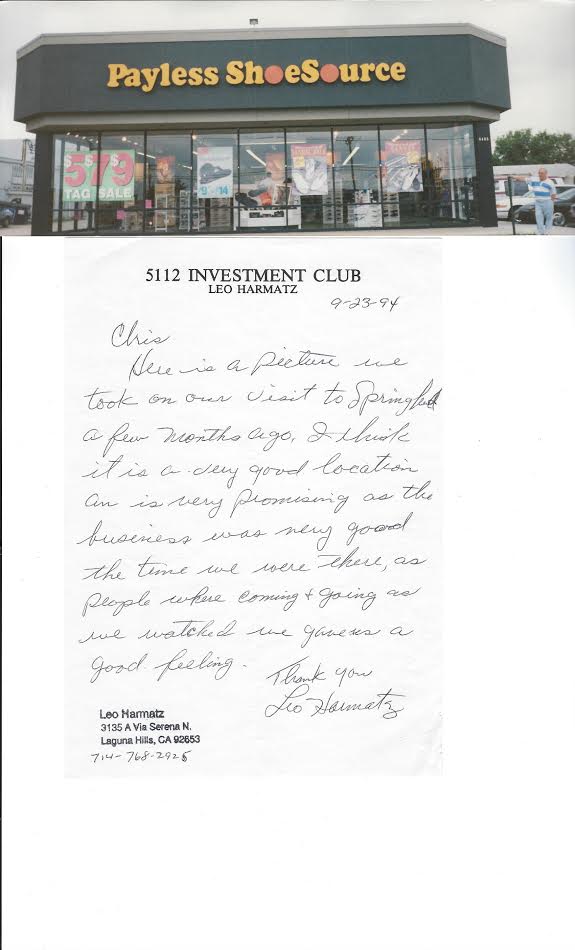 Payless ShoeSource
$5 $7 $9
TAG SALE
$9 $14
5112 INVESTMENT CLUB
LEO HARMATZ
9-23-94
Chris
Here is a picture we
took on our visit to Springfield
a few months ago, I think
it is a very good location
an is very promising as the
business was very good
the time we were there, as
people where coming + going as
we watched we gaves us a
good feeling.
Thank you
Leo Harmatz
Leo Harmatz
3135 A Via Serena N.
Laguna Hills, CA 92653
714-768-2925